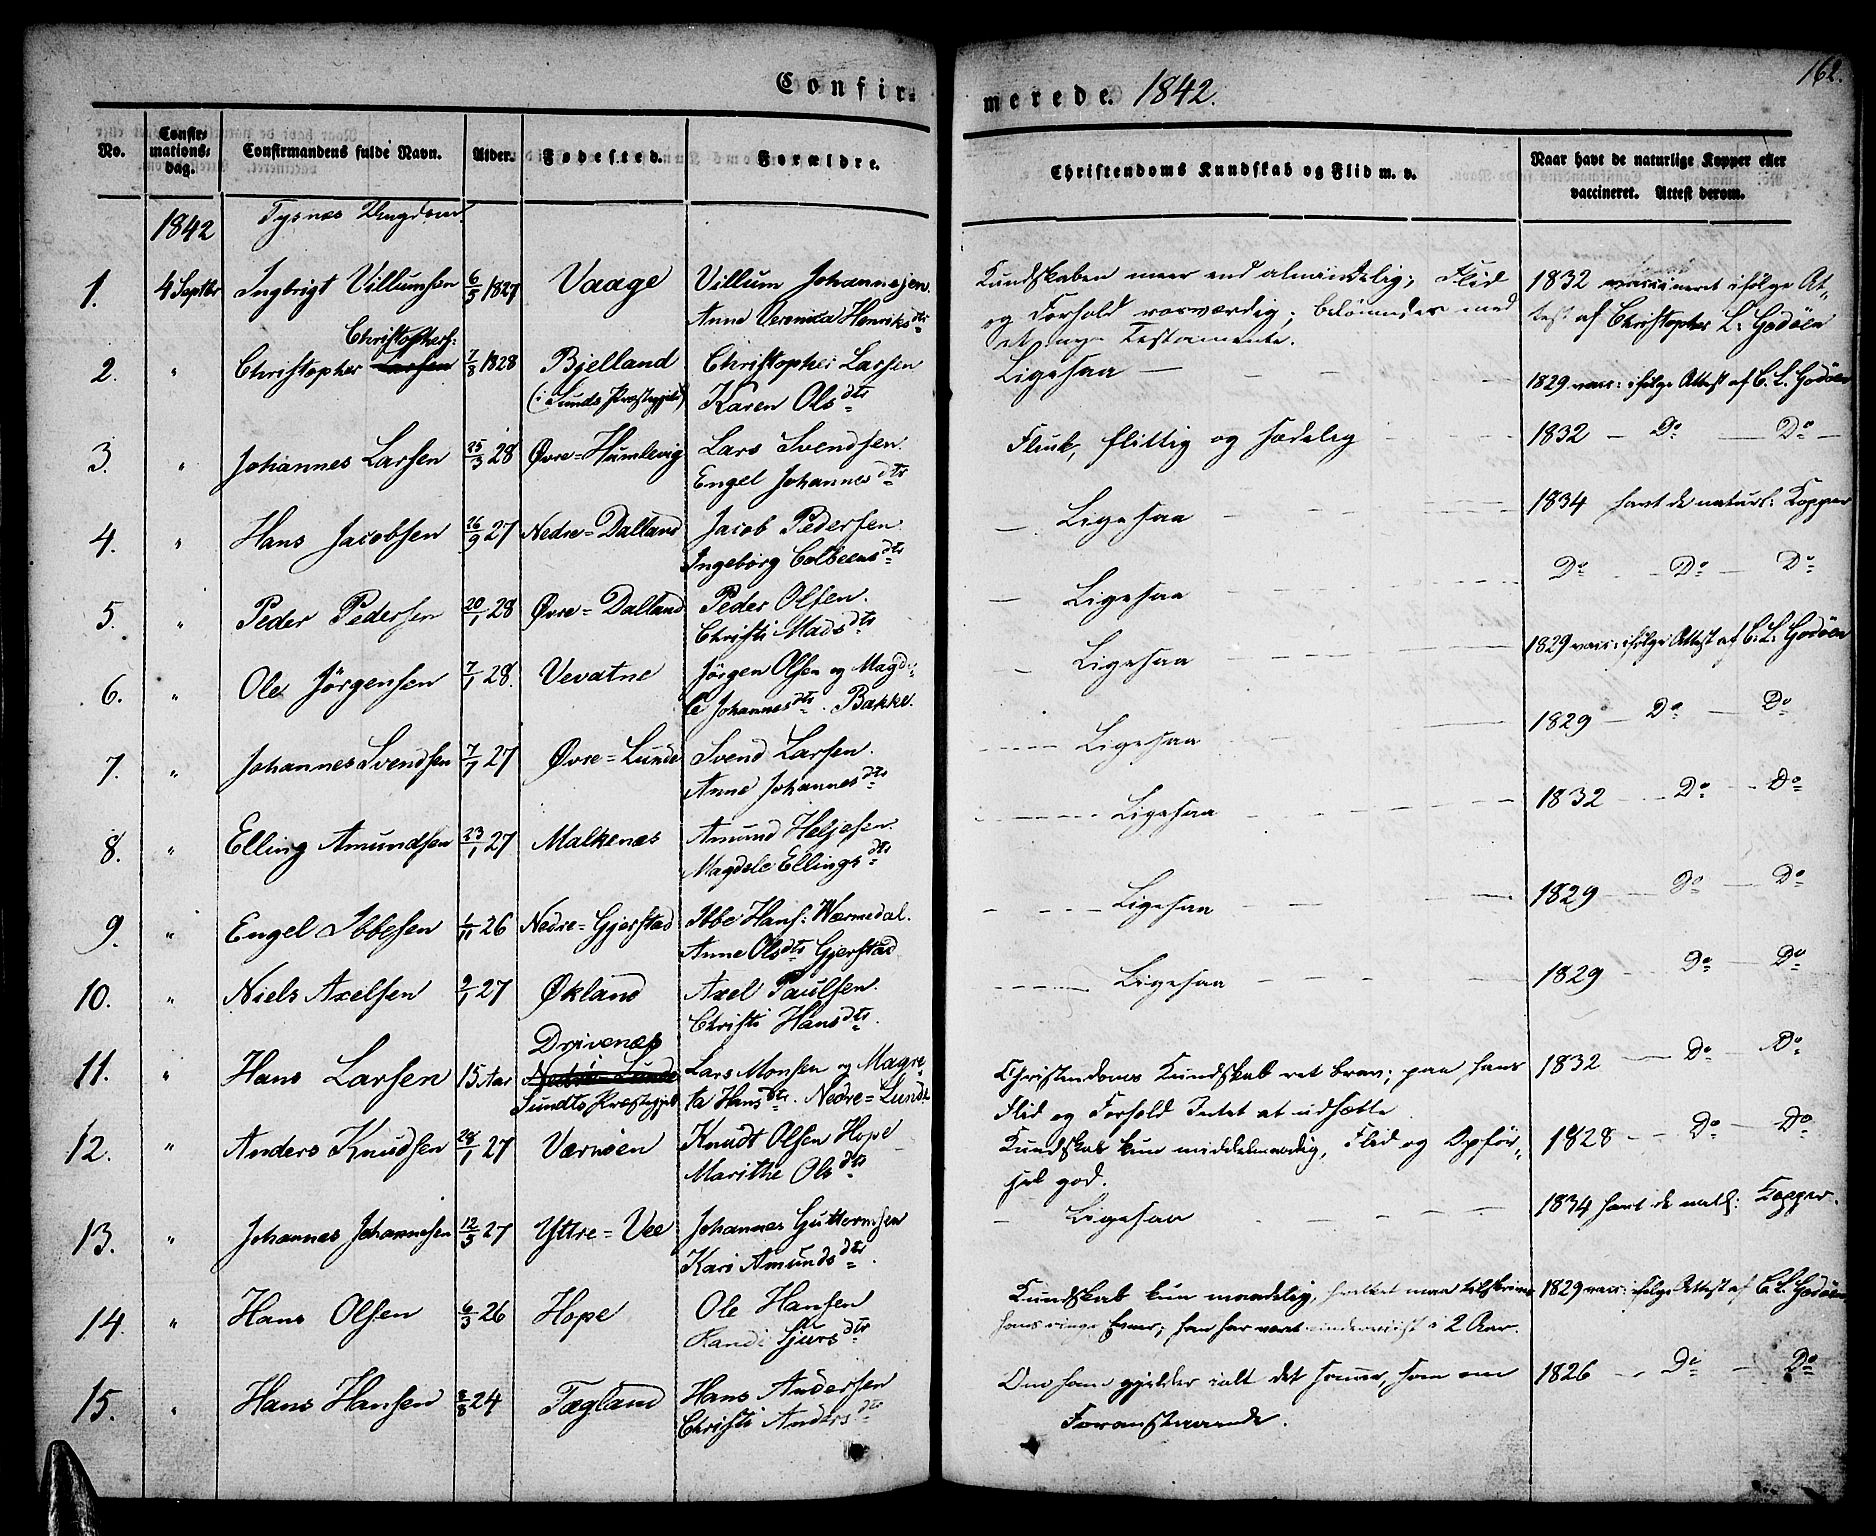 Confir-
merede. 1842.
162.
No.
Confirmationsdag.
Confirmandens fulde Navn.
Alder.
Fødested.
Forældre.
Christendoms Kundskab og Flid m. v.
Naar havt de naturlige Kopper eller
vaccineret. Attest derom.
1842 Tysnæs Ungdom
1. 4 Septbr Ingbrigt Villumsen 6/5 1827 Vaage Villum Johannesen
Anne Verenica Henriksdtr
Kundskaben meer end almindelig; Flid
og Forhold rosværdig; belønnedes med
et nyt Testamente.
1832 vaccineret ifølge At-
test af Christopher L: Godøen
Christophers:
2. " Christopher Larsen 7/3 1828 Bjelland Christopher Larsen
(i Sunds Præstegjeld) Karen Olsdtr
Ligesaa
1829 vacc: ifølge Attest af C. L. Godøen
3. " Johannes Larsen 25/3 28 Øvre=Humlevig Lars Svendsen.
Engel Johannesdtr
Flink, flittig og sædelig
1832 - Do - Do -
4. " Hans Jacobsen 26/9 27 Nedre=Dalland Jacob Pedersen
Ingeborg Colbeensdtr
Ligesaa
1834 havt de naturl: Kopper
5. " Peder Pedersen 20/1 28 Øvre=Dalland Peder Olsen.
Christi Madsdtr
Ligesaa
Do - Do - Do
6. " Ole Jörgensen 7/1 28. Vevatne Jörgen Olsen og Magde-
le Johannesdtr. Bakke.
Ligesaa
1829 vacc: ifølge Attest af C: L: Godøen
7. " Johannes Svendsen 7/7 27 Øvre=Lunde Svend Larsen.
Anne Johannesdtr
Ligesaa
1829 - Do - Do
8. " Elling Amundsen 23/1 27 Malkenæs Amund Heljesen.
Magdele Ellingsdtr
Ligesaa
1832 - Do - Do
9. " Engel Ibbesen 1/11 26 Nedre=Gjerstad Ibbe Hans: Wærmedal.
Anne Olsdtr Gjerstad
Ligesaa
1829 - Do - Do
10. " Niels Axelsen 9/1 27 Økland Axel Paulsen.
Christi Hansdtr.
Ligesaa
1829 - Do - Do
Drivenæs
11. " Hans Larsen 15 Aar Nedre=Lunde Lars Monsen og Magre-
Sundts Præstegjeld ta Hansdtr. Nedre=Lunde
Christendoms Kundskab ret brav; paa hans
Flid og Forhold Intet at udsætte.
1832 - Do - Do
12. " Anders Knudsen 28/1 27 Værnøen Knudt Olsen Hope
Marithe Olsdtr
Kundskab kun middelmaadig, Flid og Opför-
sel god.
1828 - Do - Do
13. " Johannes Johannesen 12/5 27 Yttre=Vee Johannes Guttormsen
Kari Amundsdtr.
Ligesaa
1834 havt de natl: Kopper.
14. " Hans Olsen 6/3 26 Hope Ole Hansen
Randi Sjursdtr
Kundskab kun maadelig, hvilket maa tilskrives
hans ringe Evner; han har været underviist i 2 Aar.
1829 vacc: ifølge Attest af C. L. Godøen
15. " Hans Hansen 8/8 24 Tægland Hans Andersen
Christi Andersdtr
Om ham gjelder ialt det samme, som om
Foranstaaende.
1826 - Do - Do